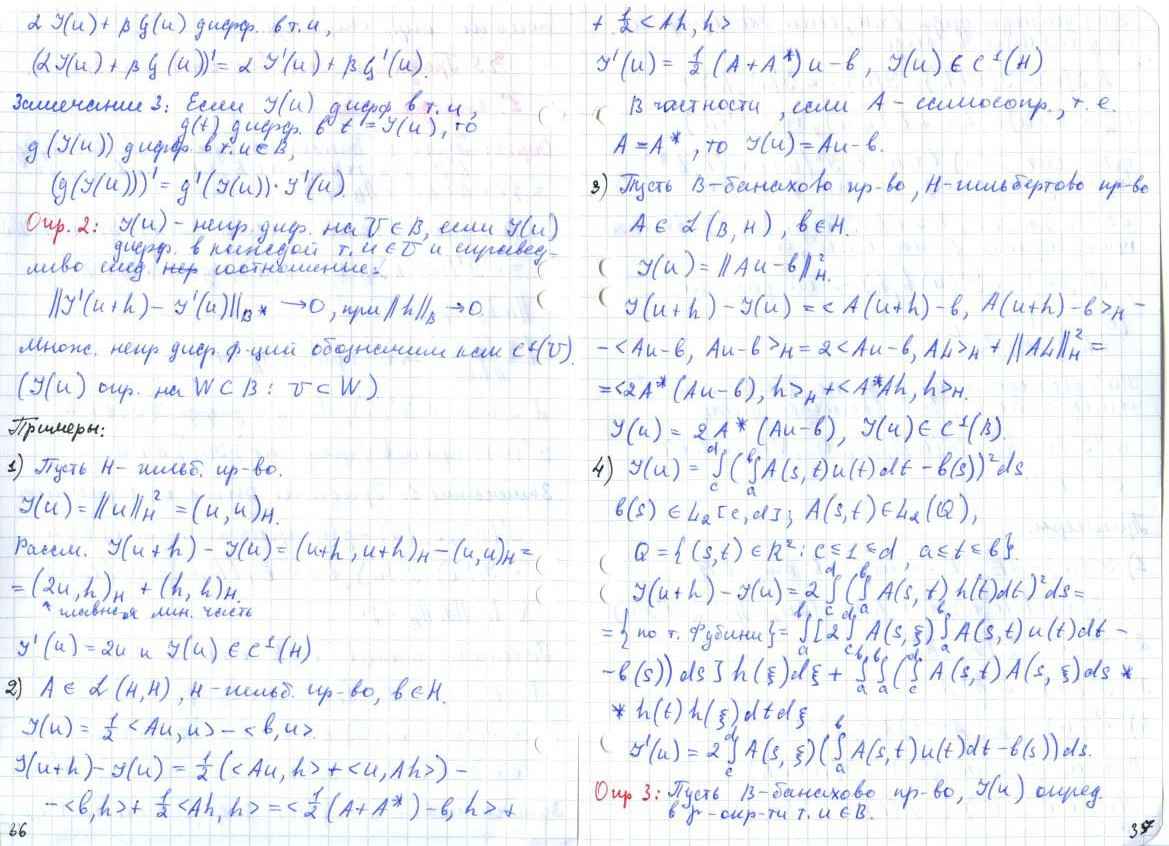 αJ(u) + βG(u) дифф. в т. u,
(αJ(u) + βG(u))' = αJ'(u) + βG'(u).
Замечание 3: Если J(u) дифф. в т. u,
g(t) дифф. в t = J(u), то
g(J(u)) дифф. в т. u ∈ B,
(g(J(u)))' = g'(J(u))·J'(u).
Опр. 2: J(u) - непр. диф. на V ∈ B, если J(u)
дифф. в каждой т. u ∈ V и справед-
ливо след. соотношение:
||J'(u+h) - J'(u)||B* → 0, при ||h||B → 0.
Множ. непр. диф. ф-ций обозначим как C¹(V).
(J(u) опр. на W ⊂ B: V ⊂ W)
Примеры:
1) Пусть H - гильб. пр-во.
J(u) = ||u||²H = (u, u)H.
Рассм. J(u+h) - J(u) = (u+h, u+h)H - (u, u)H =
= (2u, h)H + (h, h)H.
* главная лин. часть
J'(u) = 2u и J(u) ∈ C¹(H)
2) A ∈ L(H, H), H - гильб. пр-во, b ∈ H.
J(u) = ½<Au, u> - <b, u>.
J(u+h) - J(u) = ½(<Au, h> + <u, Ah>) -
- <b, h> + ½<Ah, h> = <½(A + A*) - b, h> +
36
+ ½<Ah, h>
J'(u) = ½(A + A*)u - b, J(u) ∈ C¹(H)
В частности, если A - самосопр., т. е.
A = A*, то J(u) = Au - b.
3) Пусть B - банахово пр-во, H - гильбертово пр-во
A ∈ L(B, H), b ∈ H.
J(u) = ||Au - b||²H.
J(u+h) - J(u) = <A(u+h) - b, A(u+h) - b>H -
- <Au - b, Au - b>H = 2<Au - b, Ah>H + ||Ah||²H =
= <2A*(Au - b), h>H + <A*Ah, h>H.
J(u) = 2A*(Au - b), J(u) ∈ C¹(B).
4) J(u) = ∫_c^d (∫_a^b A(s,t)u(t)dt - b(s))² ds
b(s) ∈ L₂[c, d]; A(s,t) ∈ L₂(Q),
Q = {(s,t) ∈ R²: c ≤ s ≤ d, a ≤ t ≤ b}.
J(u+h) - J(u) = 2∫_c^d (∫_a^b A(s,t)h(t)dt)² ds =
= {по т. Фубини} = ∫_a^b [2∫_c^d A(s,ξ) ∫_a^b A(s,t)u(t)dt -
- b(s)) ds] h(ξ)dξ + ∫_a^b ∫_a^b (∫_c^d A(s,t)A(s,ξ)ds *
* h(t)h(ξ)dtdξ
J'(u) = 2∫_c^d A(s,ξ)(∫_a^b A(s,t)u(t)dt - b(s))ds.
Опр 3: Пусть B - банахово пр-во, J(u) опред.
в γ-окр-ти т. u ∈ B.
37